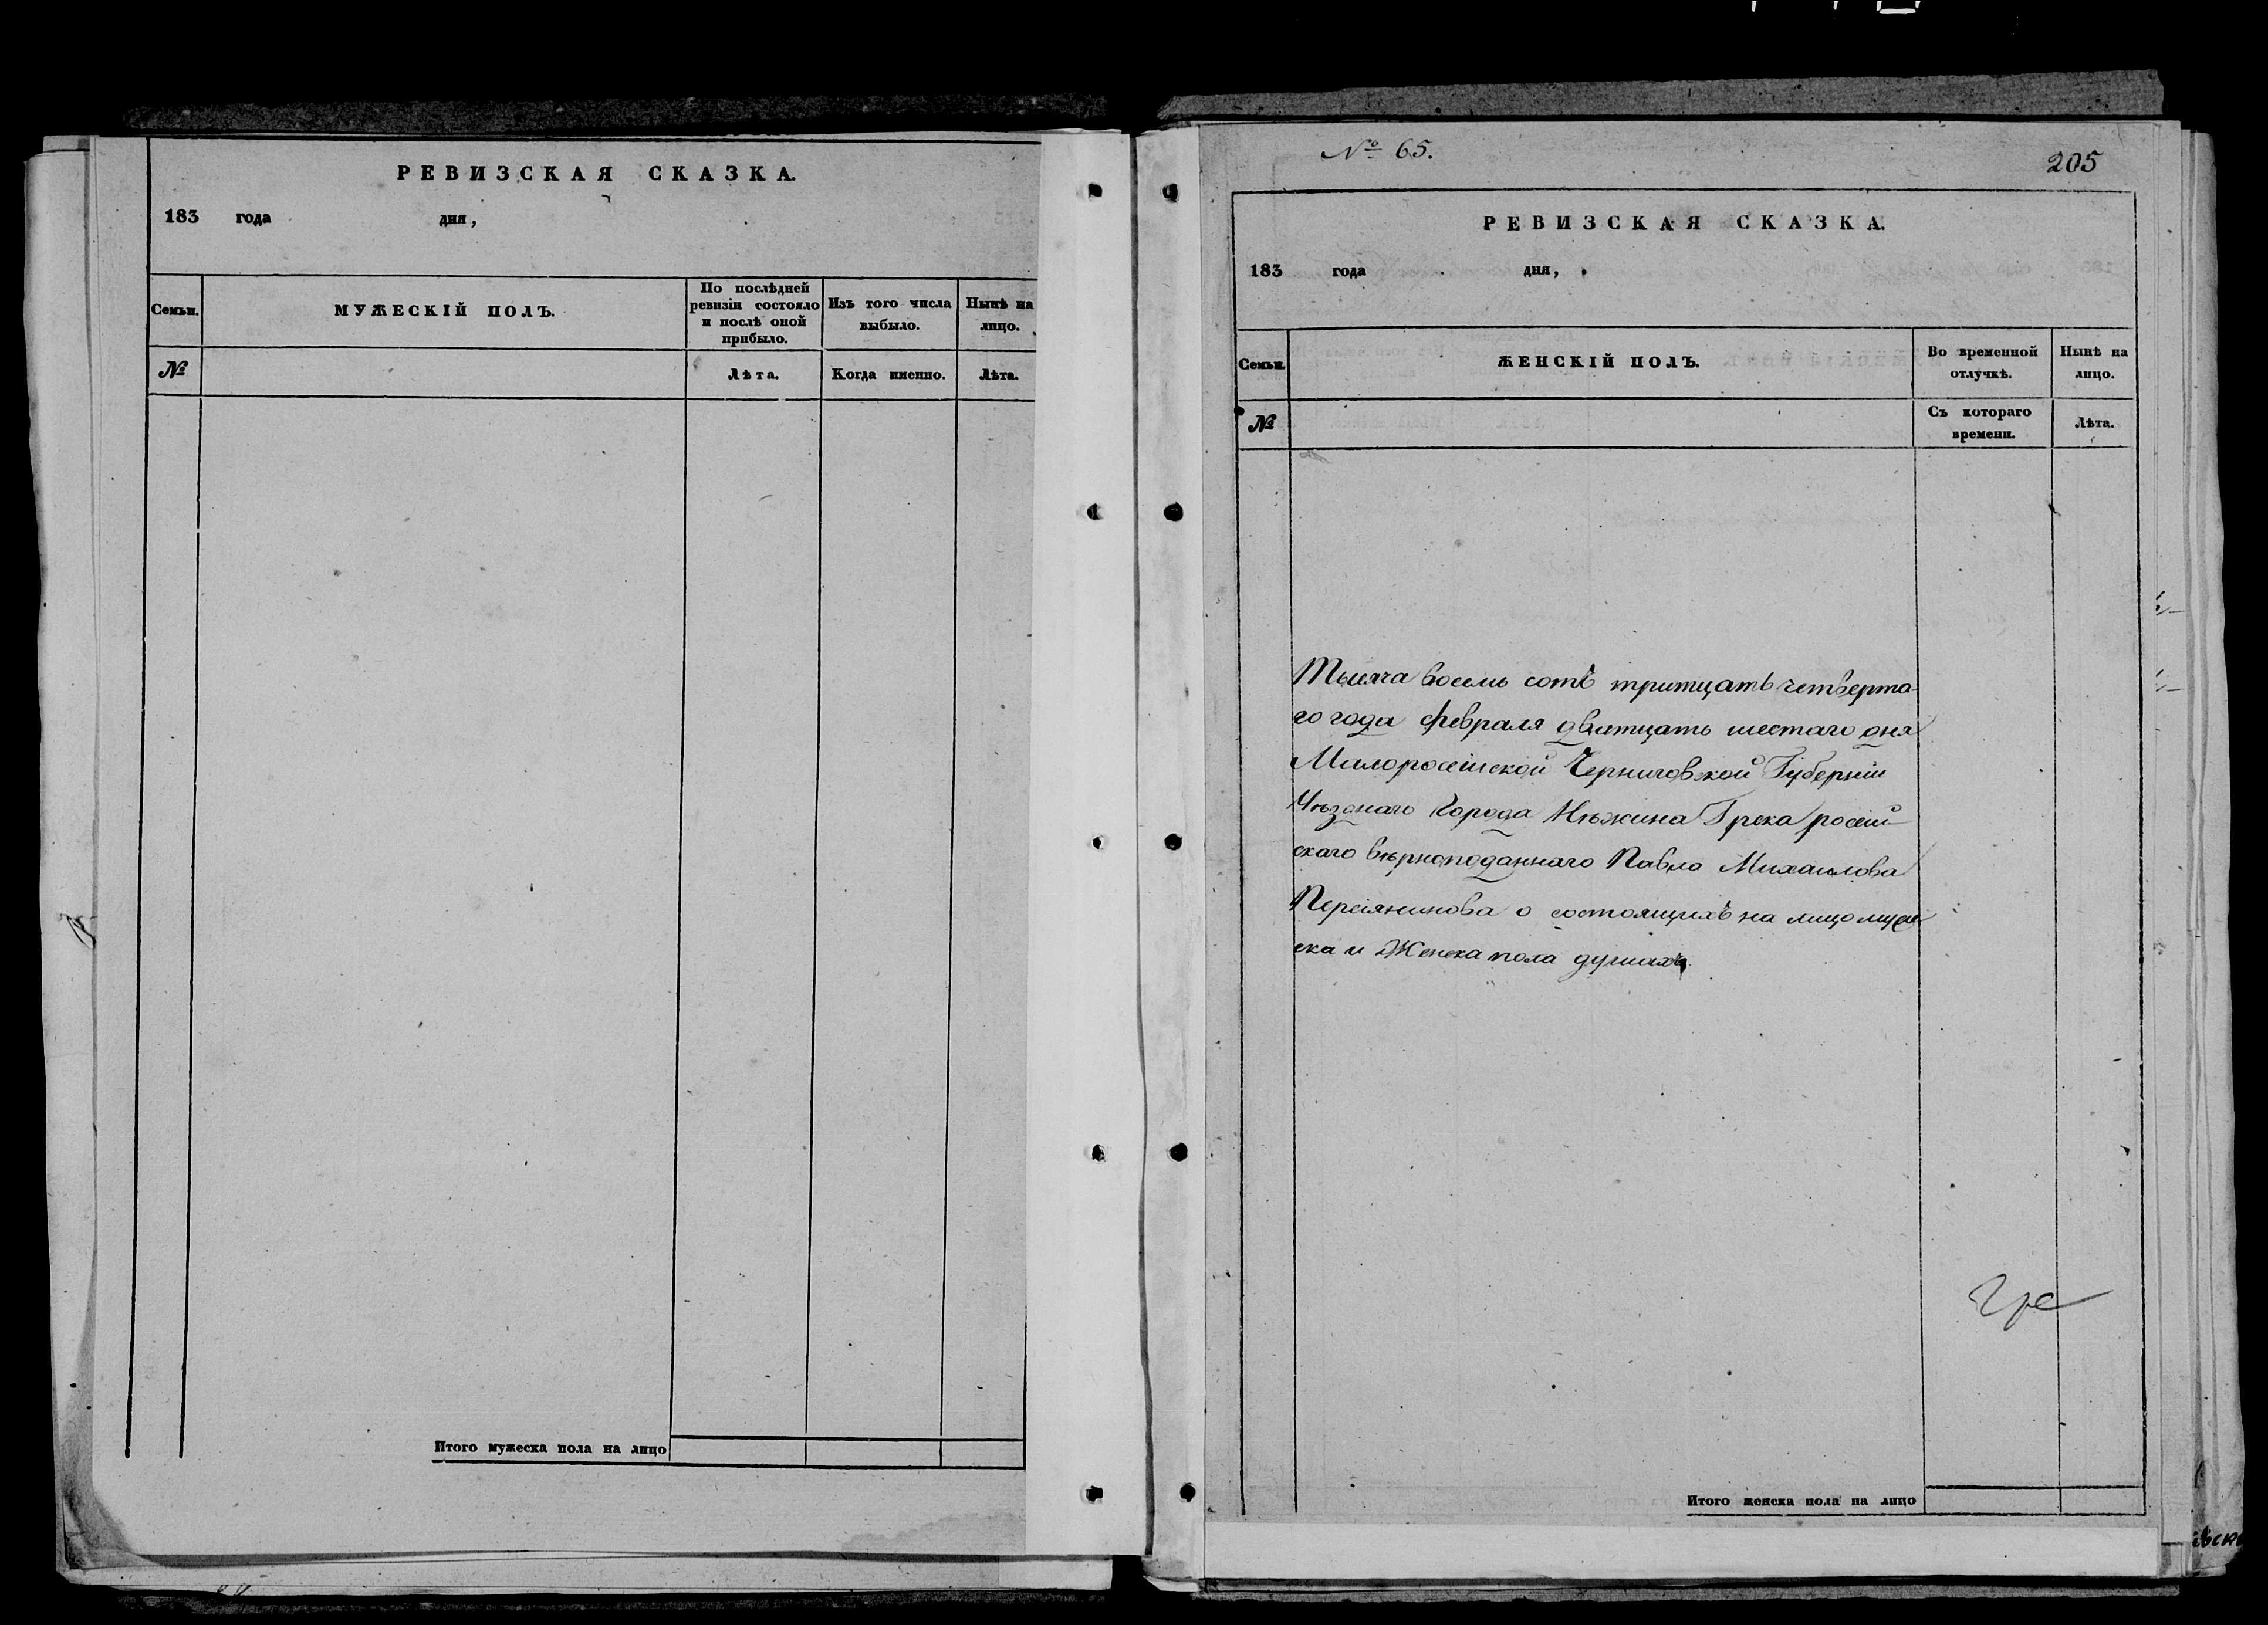 РЕВИЗСКАЯ СКАЗКА.
183 года дня,
Семьи.
МУЖЕСКІЙ ПОЛЪ.
По послѣдней ревизіи состояло и послѣ оной прибыло.
Изъ того числа выбыло.
Нынѣ на лицо.
№
Лѣта.
Когда именно.
Лѣта.
Итого мужеска пола на лицо
№ 65.
205
РЕВИЗСКАЯ СКАЗКА.
183 года дня,
Семьи.
ЖЕНСКІЙ ПОЛЪ.
Во временной отлучкѣ.
Нынѣ на лицо.
№
Съ котораго времени.
Лѣта.
Тысяча восемь сотъ тритцать четверта-
го года февраля дватцать шестаго дня
Малоросійской Черниговской Губерніи
Уѣзднаго Города Нѣжина Грека росій-
скаго вѣрноподаннаго Павла Михаилова
Персіянинова о состоящихъ на лицо муже
ска и Женска пола душахъ
Итого женска пола на лицо